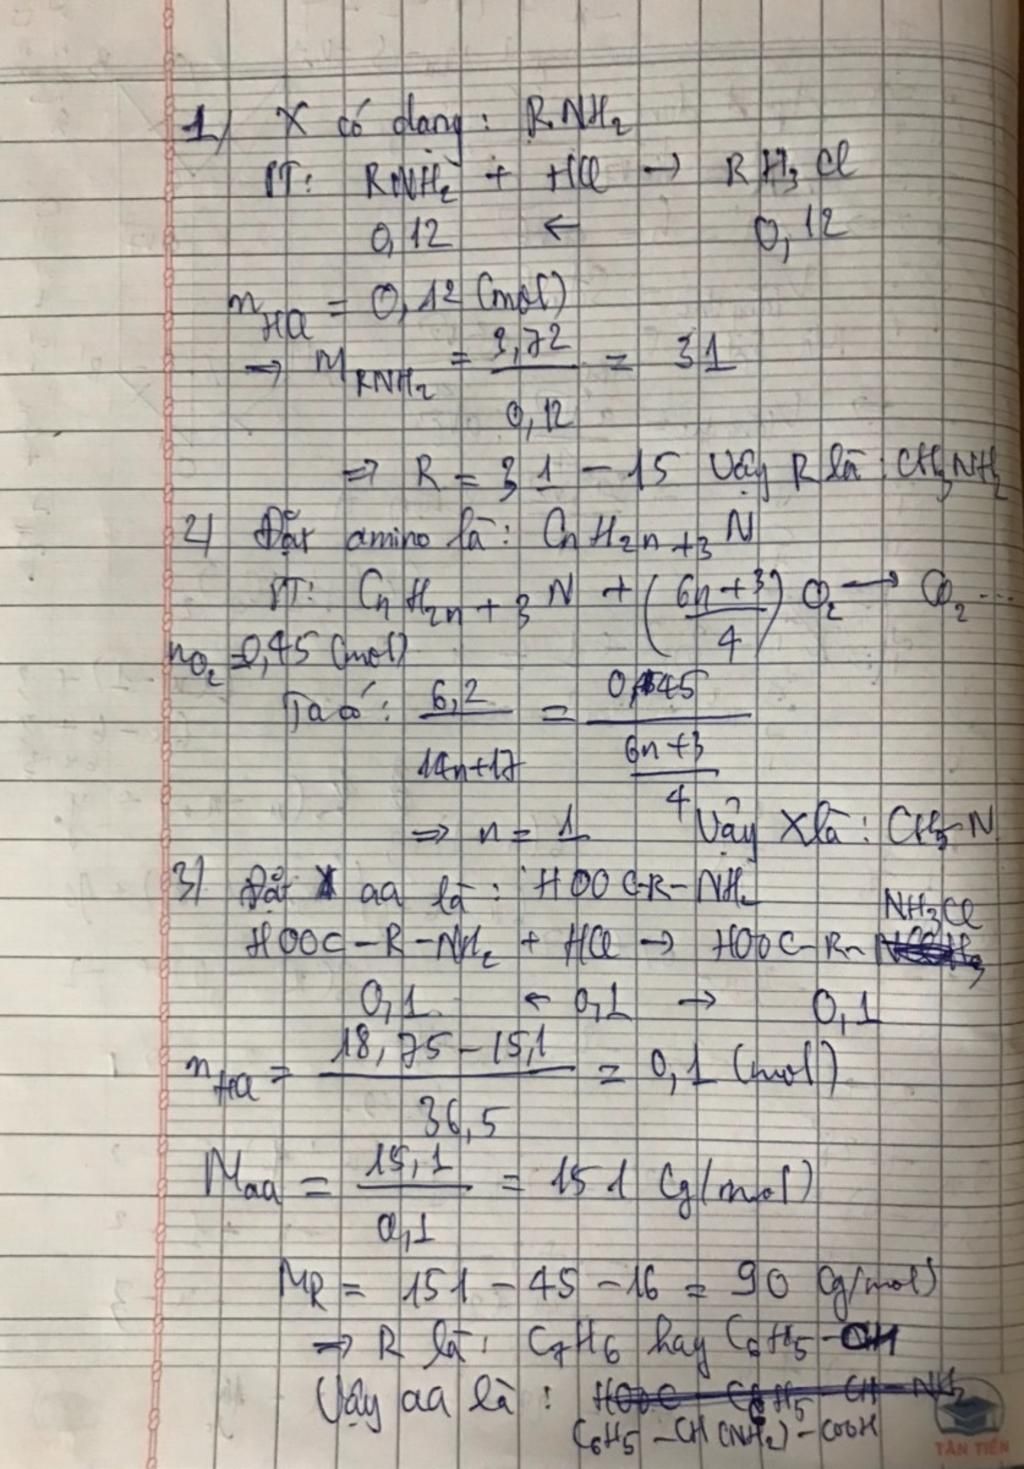 1) X có dạng: RNH2
PT: RNH2 + HCl → RH3Cl
0,12 ← 0,12
nHCl = 0,12 (mol)
⇒ MRNH2 = 3,72 / 0,12 = 31
⇒ R = 31 - 15 Vậy R là: CH3NH2
2) Đặt amino là: CnH2n+3N
PT: CnH2n+3N + (6n+3 / 4) O2 → CO2 ...
nO2 = 0,45 (mol)
Ta có: 6,2 / 14n+17 = 0,45 / (6n+3 / 4)
⇒ n = 1 Vậy X là: CH5N
3) Đặt aa là: HOOC-R-NH2
HOOC-R-NH2 + HCl → HOOC-R- NH3Cl
0,1 ← 0,1 → 0,1
nHCl = 18,75 - 15,1 / 36,5 = 0,1 (mol)
Maa = 15,1 / 0,1 = 151 (g/mol)
MR = 151 - 45 - 16 = 90 (g/mol)
⇒ R là: C7H6 hay C6H5-CH
Vậy aa là: HOOC - C6H5 - CH - NH2
C6H5 - CH(NH2) - COOH
TÂN TIẾN